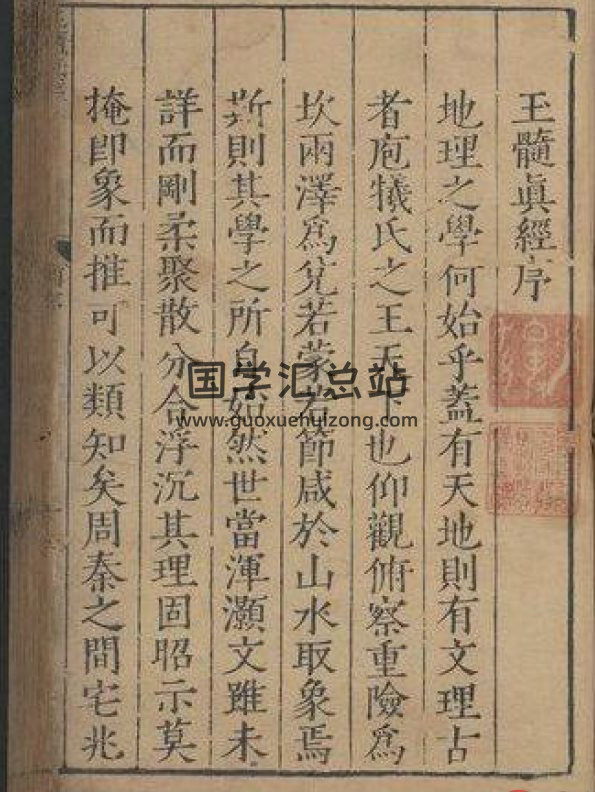 玉髓眞經序
地理之學何始乎蓋有天地則有文理古
者庖犧氏之王天下也仰觀俯察重險爲
坎兩澤爲兌若蒙若節咸於山水取象焉
斯則其學之所自始然世當渾灝文雖未
詳而剛柔聚散分合浮沉其理固昭示莫
掩即象而推可以類知矣周秦之間宅兆
国学汇总站
www.guoxuehuizong.com